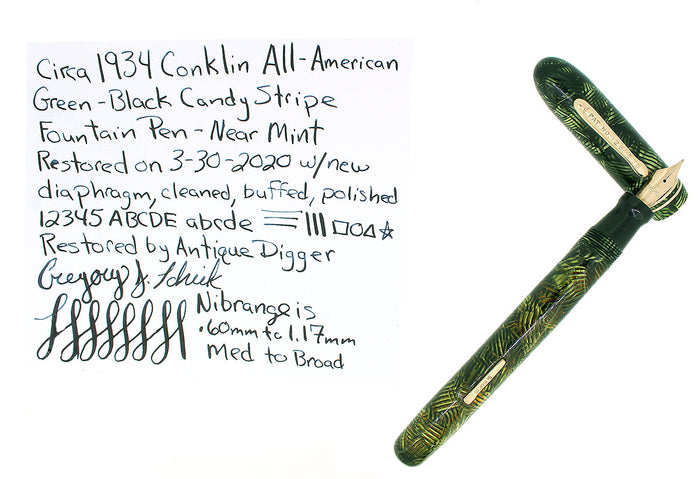 Circa 1934 Conklin All-American
Green-Black Candy Stripe
Fountain Pen - Near Mint
Restored on 3-30-2020 w/new
diaphragm, cleaned, buffed, polished
12345 ABCDE abcde
Restored by Antique Digger
Gregory J.
Nibrange is
.60mm to 1.17mm
Med to Broad